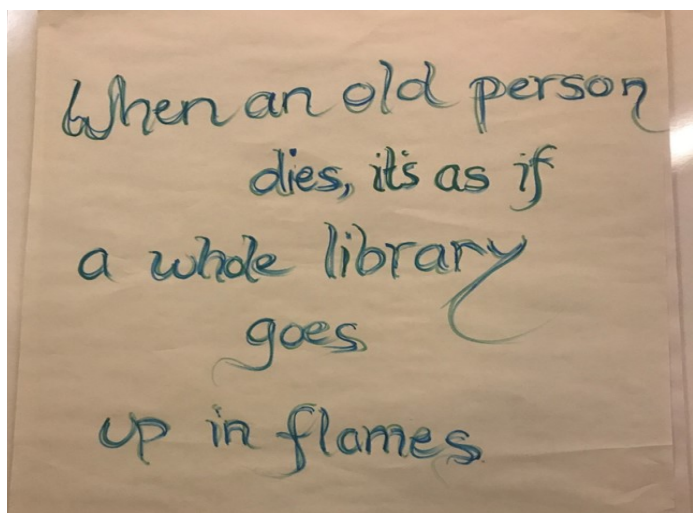 When an old person
dies, it's as if
a whole library
goes
up in flames.